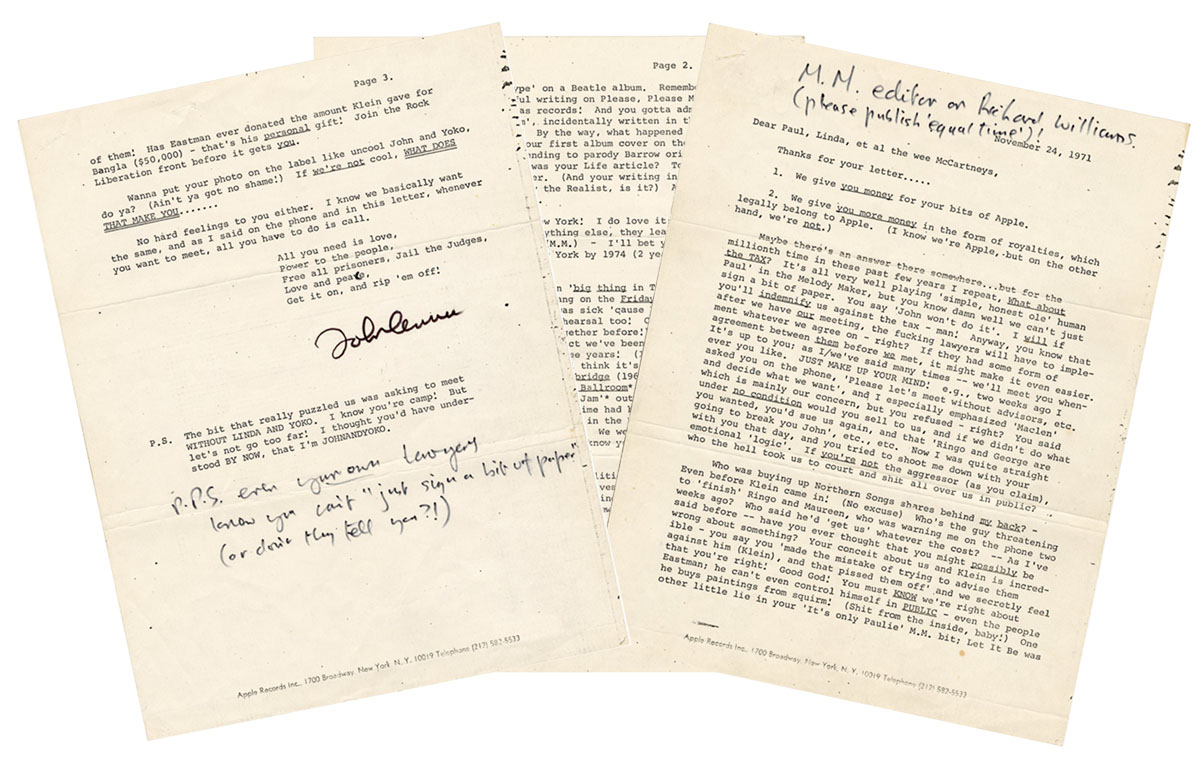 Page 3.
of them! Has Eastman ever donated the amount Klein gave for
Bangla ($50,000) - that's his personal gift! Join the Rock
Liberation front before it gets you.
Wanna put your photo on the label like uncool John and Yoko,
do ya? (Ain't ya got no shame!) If we're not cool, WHAT DOES
THAT MAKE YOU.......
No hard feelings to you either. I know we basically want
the same, and as I said on the phone and in this letter, whenever
you want to meet, all you have to do is call.
All you need is love,
Power to the people,
Free all prisoners, Jail the Judges,
Love and peace,
Get it on, and rip 'em off!
John Lennon
P.S. The bit that really puzzled us was asking to meet
WITHOUT LINDA AND YOKO. I know you're camp! But
let's not go too far! I thought you'd have under-
stood BY NOW, that I'm JOHNANDYOKO.
P.P.S. even your own lawyers
know you can't "just sign a bit of paper"
(or don't they tell you?!)
Apple Records Inc., 1700 Broadway, New York, N. Y. 10019 Telephone (212) 582-5533
Page 2.
ype' on a Beatle album. Rememb
ful writing on Please, Please M
as records! And you gotta adm
', incidentally written in t
By the way, what happened
our first album cover on the
nding to parody Barrow ori
was your Life article? To
er. (And your writing in
the Realist, is it?) A
w York! I do love it
ything else, they lea
(M.M.) - I'll bet y
York by 1974 (2 ye
n 'big thing in T
ang on the Friday
was sick 'cause
hearsal too!
gether before!
ct we've been
e years! (
think it's
bridge (196
Ballroom*
Jam'* out
ime had
in the
We we
know y
M.M. editor or Richard Williams
(please publish 'equal time')!
November 24, 1971
Dear Paul, Linda, et al the wee McCartneys,
Thanks for your letter.....
1. We give you money for your bits of Apple.
2. We give you more money in the form of royalties, which
legally belong to Apple. (I know we're Apple, but on the other
hand, we're not.)
Maybe there's an answer there somewhere...but for the
millionth time in these past few years I repeat, What about
the TAX? It's all very well playing 'simple, honest ole' human
Paul' in the Melody Maker, but you know damn well we can't just
sign a bit of paper. You say 'John won't do it'. I will if
you'll indemnify us against the tax - man! Anyway, you know that
after we have our meeting, the fucking lawyers will have to imple-
ment whatever we agree on - right? If they had some form of
agreement between them before we met, it might make it even easier.
It's up to you; as I/we've said many times -- we'll meet you when-
ever you like. JUST MAKE UP YOUR MIND! e.g., two weeks ago I
asked you on the phone, 'Please let's meet without advisors, etc.
and decide what we want', and I especially emphasized 'Maclen'
which is mainly our concern, but you refused - right? You said
under no condition would you sell to us, and if we didn't do what
you wanted, you'd sue us again, and that 'Ringo and George are
going to break you John', etc., etc. Now I was quite straight
with you that day, and you tried to shoot me down with your
emotional 'logic'. If you're not the aggressor (as you claim),
who the hell took us to court and shit all over us in public?
Who was buying up Northern Songs shares behind my back? -
Even before Klein came in! (No excuse) Who's the guy threatening
to 'finish' Ringo and Maureen, who was warning me on the phone two
weeks ago? Who said he'd 'get us' whatever the cost? -- As I've
said before -- have you ever thought that you might possibly be
wrong about something? Your conceit about us and Klein is incred-
ible - you say you 'made the mistake of trying to advise them
against him (Klein), and that pissed them off' and we secretly feel
that you're right! Good God! You must KNOW we're right about
Eastman; he can't even control himself in PUBLIC - even the people
he buys paintings from squirm! (Shit from the inside, baby!) One
other little lie in your 'It's only Paulie' M.M. bit; Let It Be was
Apple Records Inc., 1700 Broadway, New York, N. Y. 10019 Telephone (212) 582-5533